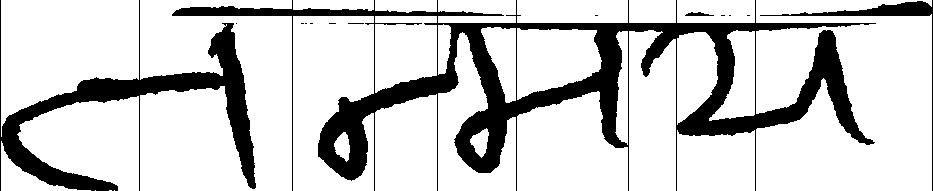 तन्मय